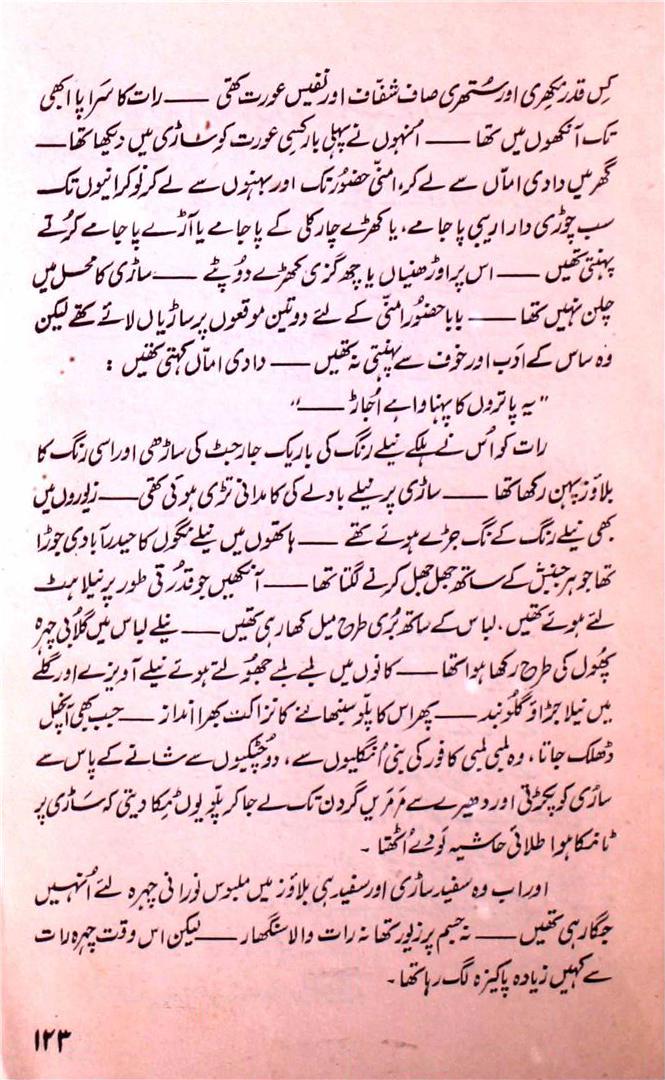 کِس قدر نِکھری اور سُتھری صاف شفّاف اور نفیس عورت تھی —— رات کا سَراپا ابھی
تک آنکھوں میں تھا —— اُنہوں نے پہلی بار کِسی عورت کو ساڑی میں دیکھا تھا ——
گھر میں دادی امّاں سے لے کر، امنّی حضُور تک اور بہنوں سے لے کر نوکرانیوں تک
سب چوڑی دار اریبی پاجامے، یا کھڑے چار کلی کے پاجامے یا آڑے پاجامے کُرتے
پہنتی تھیں —— اس پر اوڑھنیاں یا چھ گزی کھڑے دُوپٹے —— ساڑی کا محل میں
چلن نہیں تھا —— بابا حضُور امنّی کے لئے دو تین موقعوں پر ساڑیاں لائے تھے لیکن
وہ ساس کے اَدب اور خوف سے پہنتی نہ تھیں —— دادی امّاں کہتی تھیں :
"یہ پاتروں کا پہناوا ہے اُجاڑ ——"
رات کو اُس نے ہلکے نیلے رنگ کی باریک جارجٹ کی ساڑھی اور اسی رنگ کا
بلاؤز پہن رکھا تھا —— ساڑی پر نیلے بادلے کی کامدانی تڑی ہوئی تھی —— زیوروں میں
بھی نیلے رنگ کے نگ جڑے ہوئے تھے —— ہاتھوں میں نیلے نگوں کا حیدرآبادی جوڑا
تھا جو ہر جنبش کے ساتھ جھل جھل کرنے لگتا تھا —— آنکھیں جو قدُرتی طور پر نیلاہٹ
لئے ہوئے تھیں، لباس کے ساتھ بُری طرح میل کھا رہی تھیں —— نیلے لباس میں گلابی چہرہ
پھُول کی طرح رکھا ہوا تھا —— کانوں میں لمبے لمبے جھُولتے ہوئے نیلے آویزے اور گلے
میں نیلا جڑاؤ گلُوبند —— پھر اس کا پلّو سنبھالنے کا نزاکت بھرا انداز —— جب بھی آنچل
ڈھلک جاتا، وہ لمبی لمبی کافور کی بنی اُنگلیوں سے، دو چُٹکیوں سے شانے کے پاس سے
ساڑی کو پکڑتی اور دھیرے سے مَرمَریں گردن تک لے جا کر پلّو یوں ٹِکا دیتی کہ سَاڑی پر
ٹانکا ہوا طلائی حاشیہ لَو دے اُٹھتا ۔
اور اب وہ سفید ساڑی اور سفید ہی بلاؤز میں ملبوس نورانی چہرہ لئے اُنہیں
جگا رہی تھیں —— نہ جسم پر زیور تھا نہ رات والا سنگھار —— لیکن اس وقت چہرہ رات
سے کہیں زیادہ پاکیزہ لگ رہا تھا ۔
۱۲۳